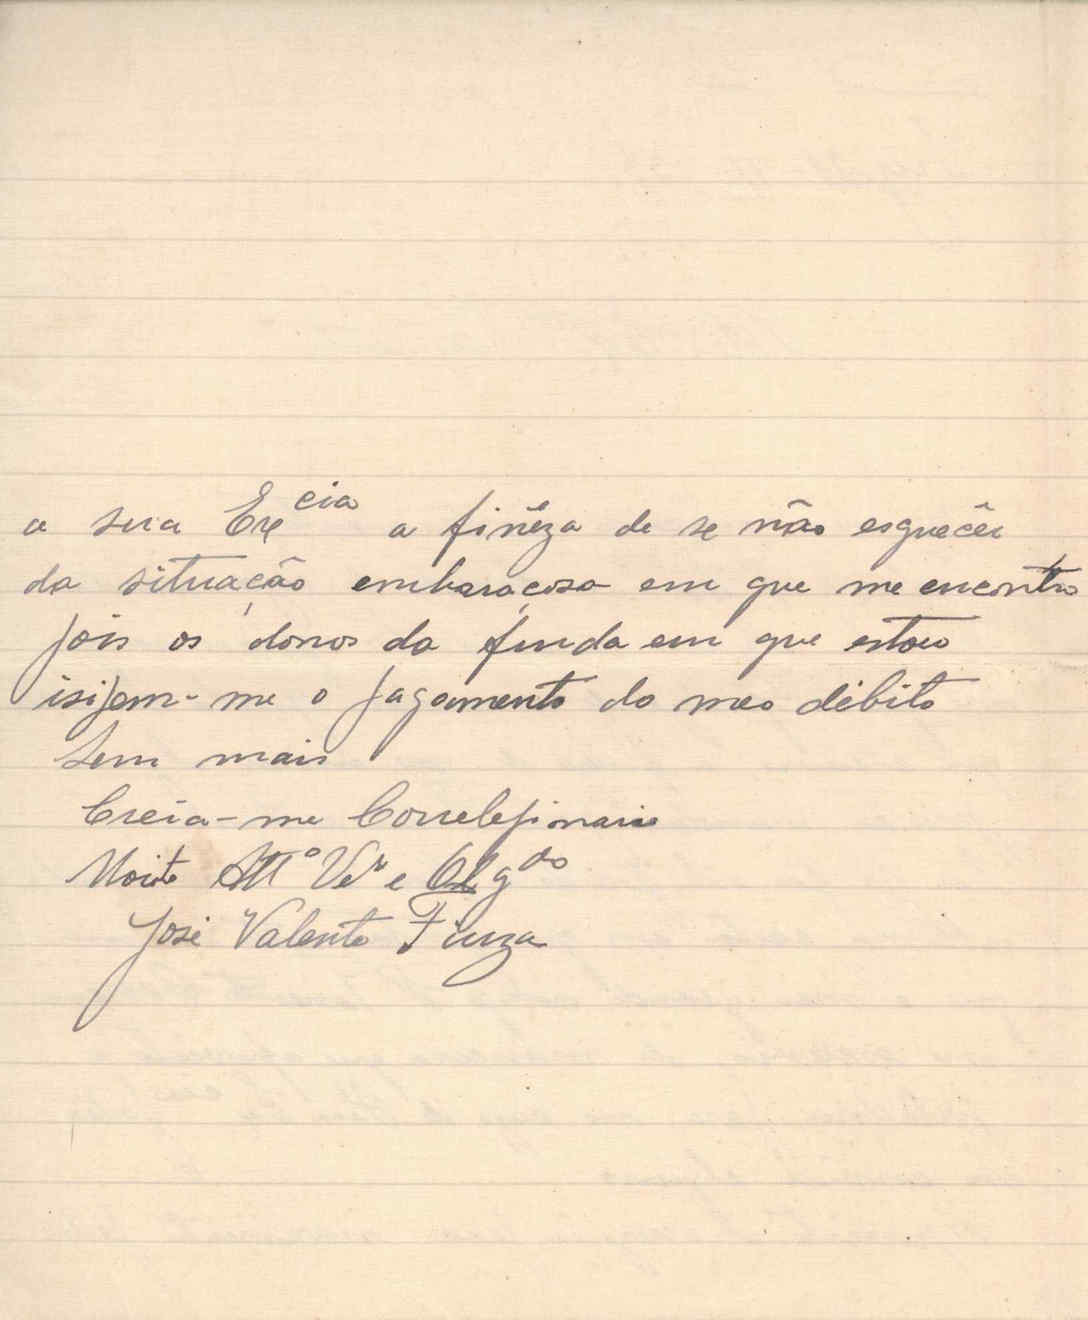 a sua Exᶜⁱᵃ a finêza de se não esquecêr
da situação embaraçosa em que me encontro
pois os donos da funda em que estou
isijem-me o pagamento do meo débito
Sem mais
Creia-me Correlejinario
Moito Attº Veʳ e Obgᵈᵒ
José Valente Fiuza